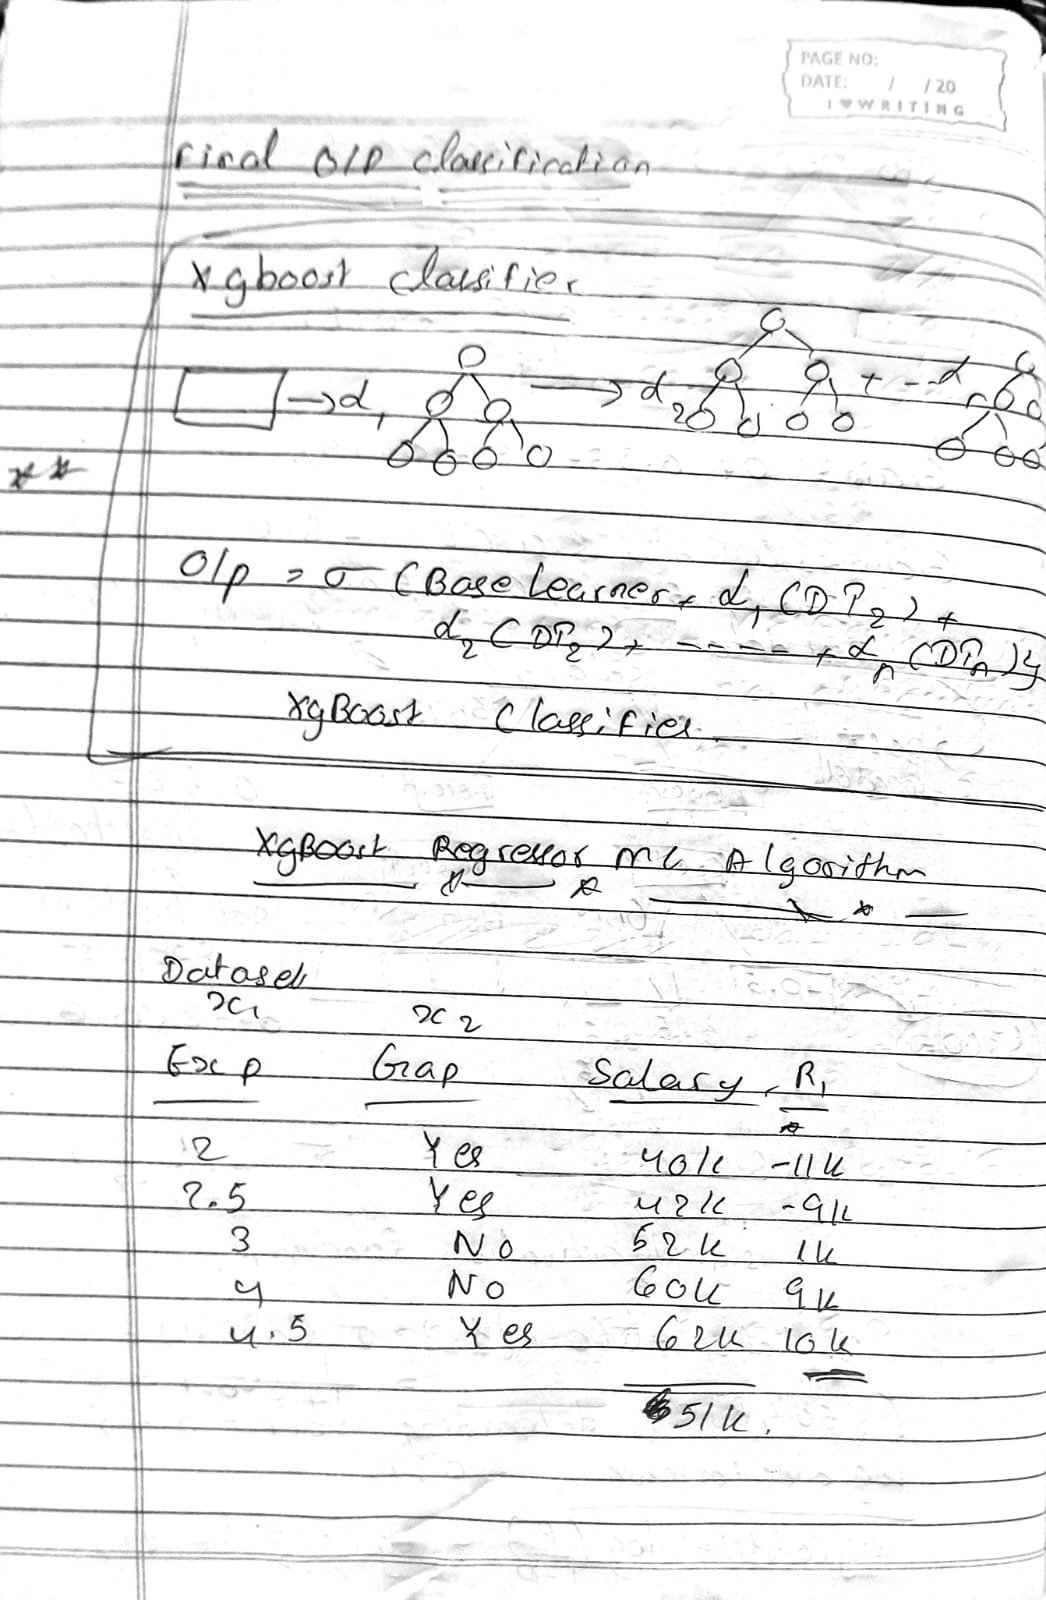 PAGE NO:
DATE: / /20
I ♥ WRITING
Final O/P classification
Xgboost classifier
→ α1 → α2 + -- α
**
O/p = σ (Base Learner + α1 (DT2) +
α2 (DT2) + ---- + αn (DTn)}
XgBoost Classifier
XgBoost Regressor ML Algorithm
Dataset
x1 x2
Exp Gap Salary R1
2 Yes 40k -11k
2.5 Yes 42k -9k
3 No 52k 1k
4 No 60k 9k
4.5 Yes 62k 10k
51k.